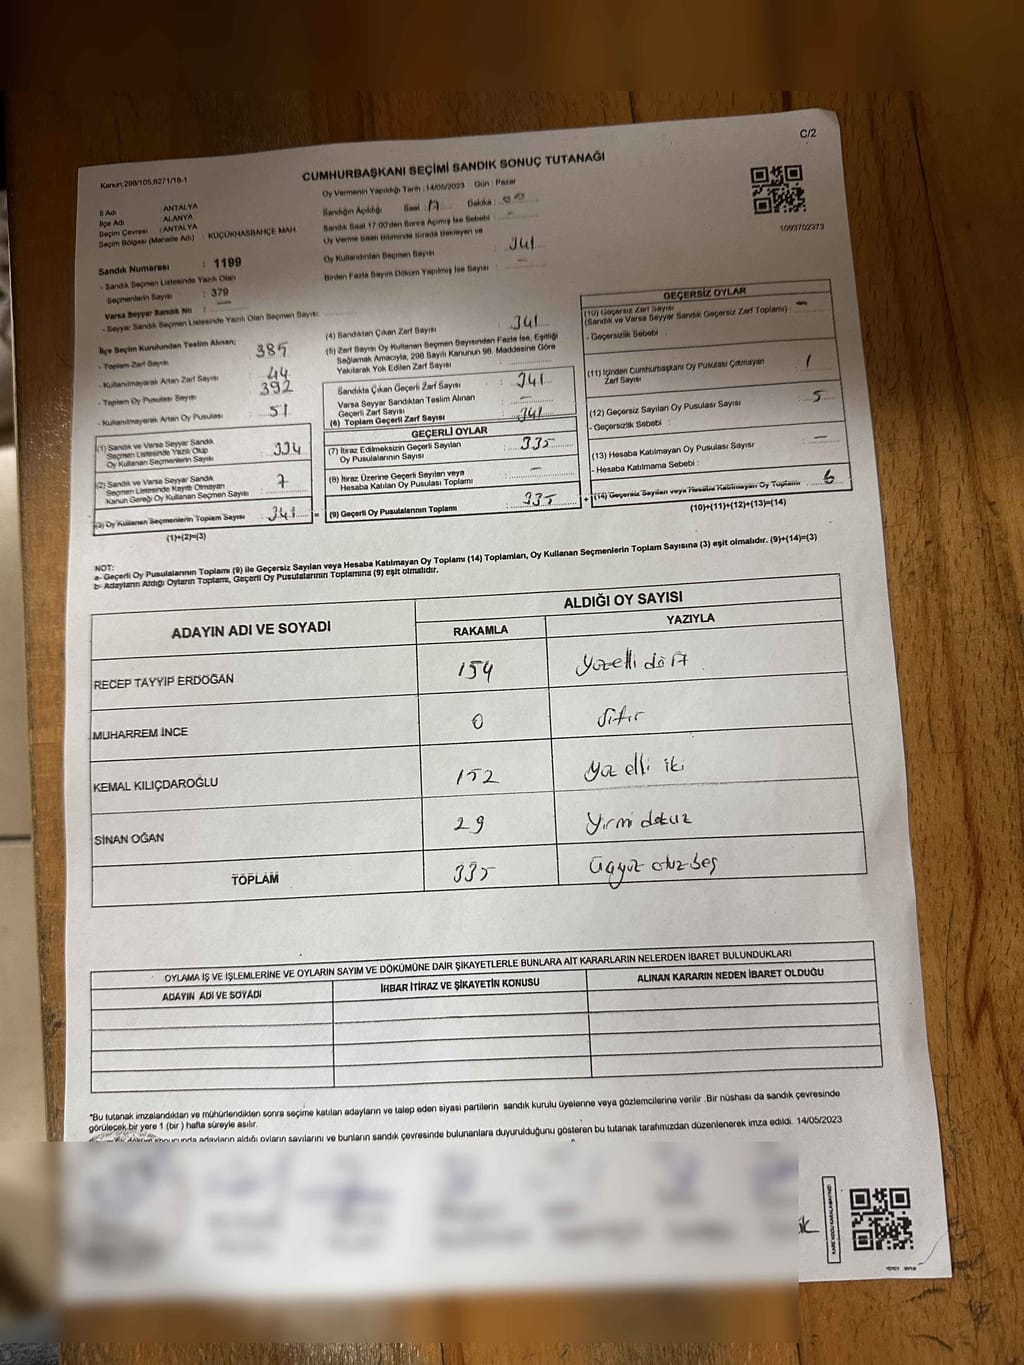 C/2
Kanun:298/105,6271/18-1
CUMHURBAŞKANI SEÇİMİ SANDIK SONUÇ TUTANAĞI
İl Adı : ANTALYA
İlçe Adı : ALANYA
Seçim Çevresi : ANTALYA
Seçim Bölgesi (Mahalle Adı) : KÜÇÜKHASBAHÇE MAH
Sandık Numarası : 1199
- Sandık Seçmen Listesinde Yazılı Olan
Seçmenlerin Sayısı : 379
Varsa Seyyar Sandık No : —
- Seyyar Sandık Seçmen Listesinde Yazılı Olan Seçmen Sayısı:
Oy Vermenin Yapıldığı Tarih : 14/05/2023 Gün : Pazar
Sandığın Açıldığı Saat : 17 Dakika : 00
Sandık Saat 17:00'den Sonra Açılmış İse Sebebi : -
Oy Verme Saati Bitiminde Sırada Bekleyen ve
Oy Kullandırılan Seçmen Sayısı 341
Birden Fazla Sayım Döküm Yapılmış İse Sayısı : —
1093702373
İlçe Seçim Kurulundan Teslim Alınan;
- Toplam Zarf Sayısı 385
- Kullanılmayarak Artan Zarf Sayısı 44
- Toplam Oy Pusulası Sayısı 392
- Kullanılmayarak Artan Oy Pusulası 51
(1) Sandık ve Varsa Seyyar Sandık
Seçmen Listesinde Yazılı Olup
Oy Kullanan Seçmenlerin Sayısı : 334
(2) Sandık ve Varsa Seyyar Sandık
Seçmen Listesinde Kayıtlı Olmayan
Kanun Gereği Oy Kullanan Seçmen Sayısı : 7
(3) Oy Kullanan Seçmenlerin Toplam Sayısı : 341
(1)+(2)=(3)
(4) Sandıktan Çıkan Zarf Sayısı 341
(5) Zarf Sayısı Oy Kullanan Seçmen Sayısından Fazla İse, Eşitliği
Sağlamak Amacıyla, 298 Sayılı Kanunun 98. Maddesine Göre
Yakılarak Yok Edilen Zarf Sayısı
Sandıkta Çıkan Geçerli Zarf Sayısı 341
Varsa Seyyar Sandıktan Teslim Alınan
Geçerli Zarf Sayısı —
(6) Toplam Geçerli Zarf Sayısı 341
GEÇERLİ OYLAR
(7) İtiraz Edilmeksizin Geçerli Sayılan
Oy Pusulalarının Sayısı 335
(8) İtiraz Üzerine Geçerli Sayılan veya
Hesaba Katılan Oy Pusulası Toplamı —
= (9) Geçerli Oy Pusulalarının Toplamı 335
GEÇERSİZ OYLAR
(10) Geçersiz Zarf Sayısı
(Sandık ve Varsa Seyyar Sandık Geçersiz Zarf Toplamı) : —
- Geçersizlik Sebebi :
(11) İçinden Cumhurbaşkanı Oy Pusulası Çıkmayan
Zarf Sayısı 1
(12) Geçersiz Sayılan Oy Pusulası Sayısı 5
- Geçersizlik Sebebi :
(13) Hesaba Katılmayan Oy Pusulası Sayısı —
- Hesaba Katılmama Sebebi :
+ (14) Geçersiz Sayılan veya Hesaba Katılmayan Oy Toplamı 6
(10)+(11)+(12)+(13)=(14)
NOT:
a- Geçerli Oy Pusulalarının Toplamı (9) ile Geçersiz Sayılan veya Hesaba Katılmayan Oy Toplamı (14) Toplamları, Oy Kullanan Seçmenlerin Toplam Sayısına (3) eşit olmalıdır. (9)+(14)=(3)
b- Adayların Aldığı Oyların Toplamı, Geçerli Oy Pusulalarının Toplamına (9) eşit olmalıdır.
ADAYIN ADI VE SOYADI
ALDIĞI OY SAYISI
RAKAMLA YAZIYLA
RECEP TAYYİP ERDOĞAN 154 yüzelli dört
MUHARREM İNCE 0 sıfır
KEMAL KILIÇDAROĞLU 152 yüz elli iki
SİNAN OĞAN 29 yirmi dokuz
TOPLAM 335 üçyüz otuz beş
OYLAMA İŞ VE İŞLEMLERİNE VE OYLARIN SAYIM VE DÖKÜMÜNE DAİR ŞİKAYETLERLE BUNLARA AİT KARARLARIN NELERDEN İBARET BULUNDUKLARI
ADAYIN ADI VE SOYADI İHBAR İTİRAZ VE ŞİKAYETİN KONUSU ALINAN KARARIN NEDEN İBARET OLDUĞU
*Bu tutanak imzalandıktan ve mühürlendikten sonra seçime katılan adayların ve talep eden siyasi partilerin sandık kurulu üyelerine veya gözlemcilerine verilir .Bir nüshası da sandık çevresinde
görülecek bir yere 1 (bir ) hafta süreyle asılır.
sonucunda adayların aldığı oyların sayılarını ve bunların sandık çevresinde bulunanlara duyurulduğunu gösteren bu tutanak tarafımızdan düzenlenerek imza edildi. 14/05/2023